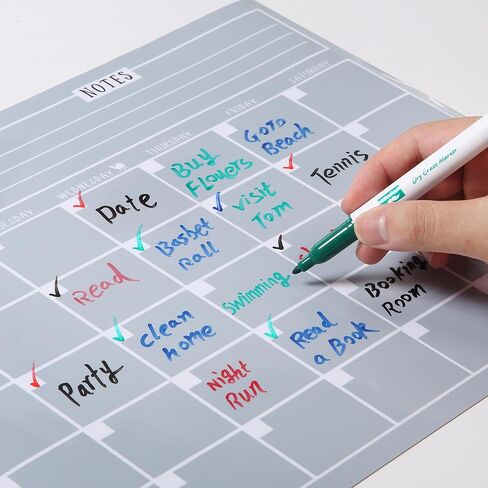 NOTES
UESDAY
WEDNESDAY
THURSDAY
FRIDAY
SATURDAY
Date
Buy
Flowers
Goto
Beach
Read
Basket
Ball
Visit
Tom
Tennis
Party
clean
home
Swimming
Night
Run
Read
a Book
Booking
Room
Dry Erase Marker